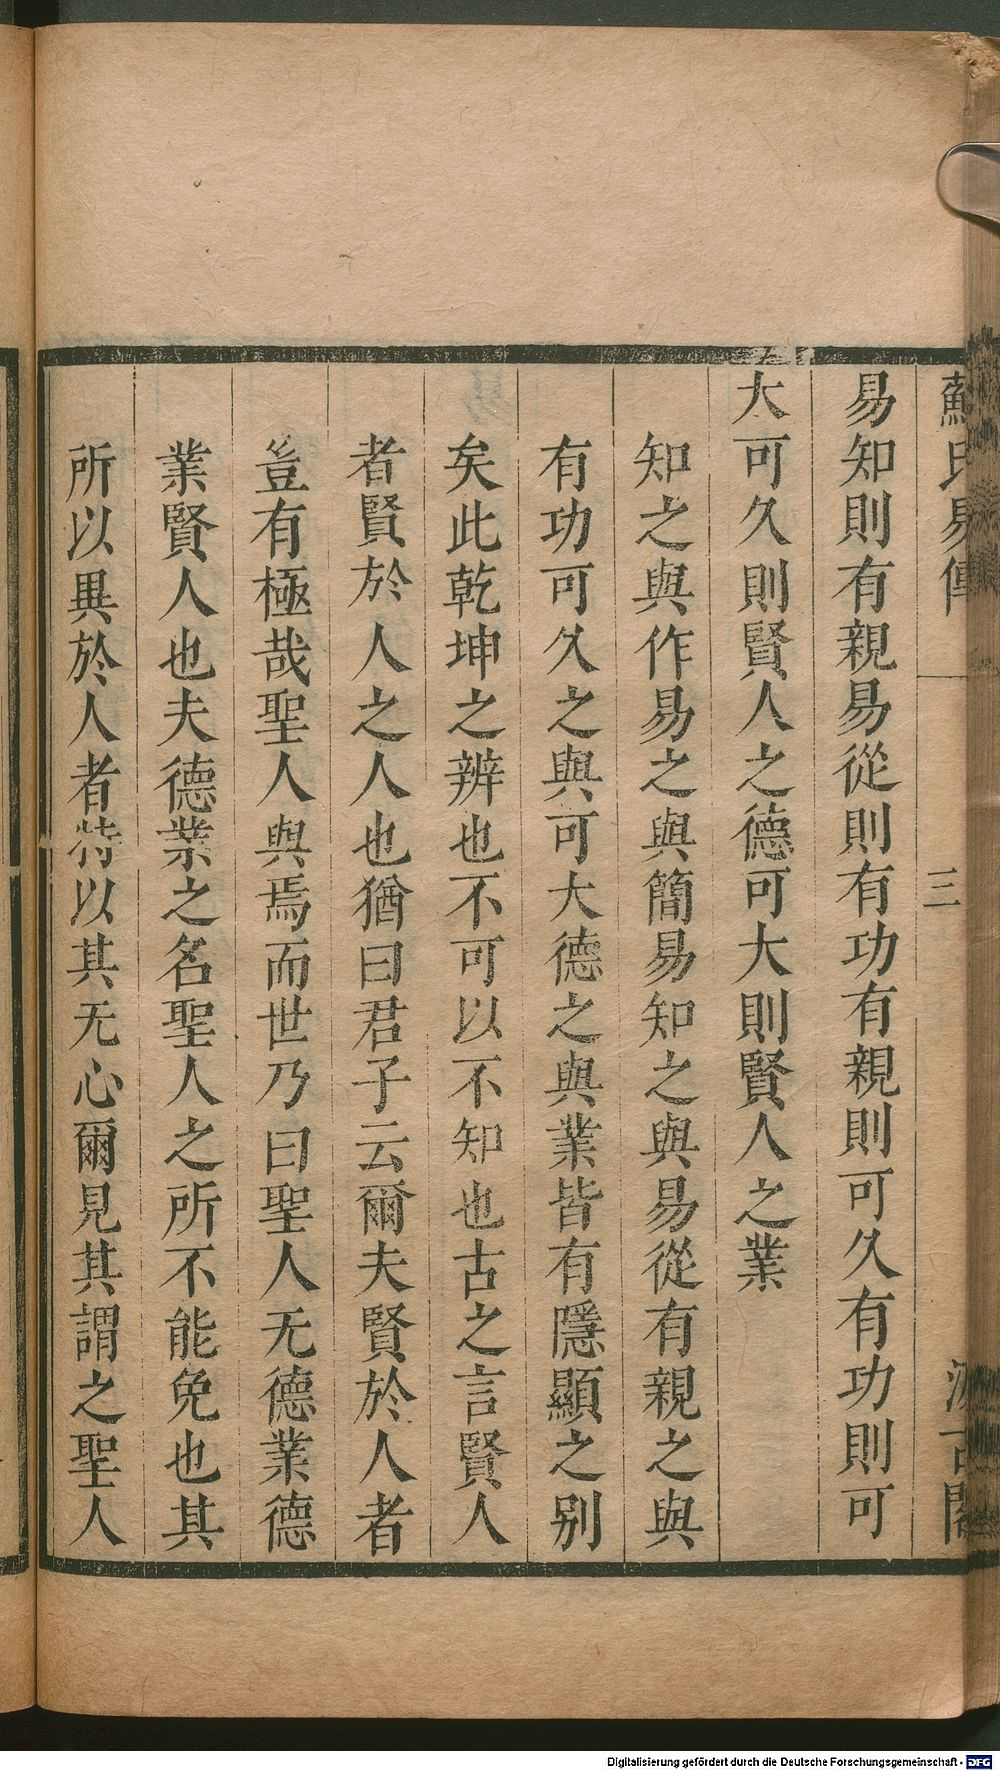 蘇氏易傳 三 汲古閣
易知則有親易從則有功有親則可久有功則可
大可久則賢人之德可大則賢人之業
知之與作易之與簡易知之與易從有親之與
有功可久之與可大德之與業皆有隱顯之別
矣此乾坤之辨也不可以不知也古之言賢人
者賢於人之人也猶曰君子云爾夫賢於人者
豈有極哉聖人與焉而世乃曰聖人无德業德
業賢人也夫德業之名聖人之所不能免也其
所以異於人者特以其无心爾見其謂之聖人
Digitalisierung gefördert durch die Deutsche Forschungsgemeinschaft - DFG